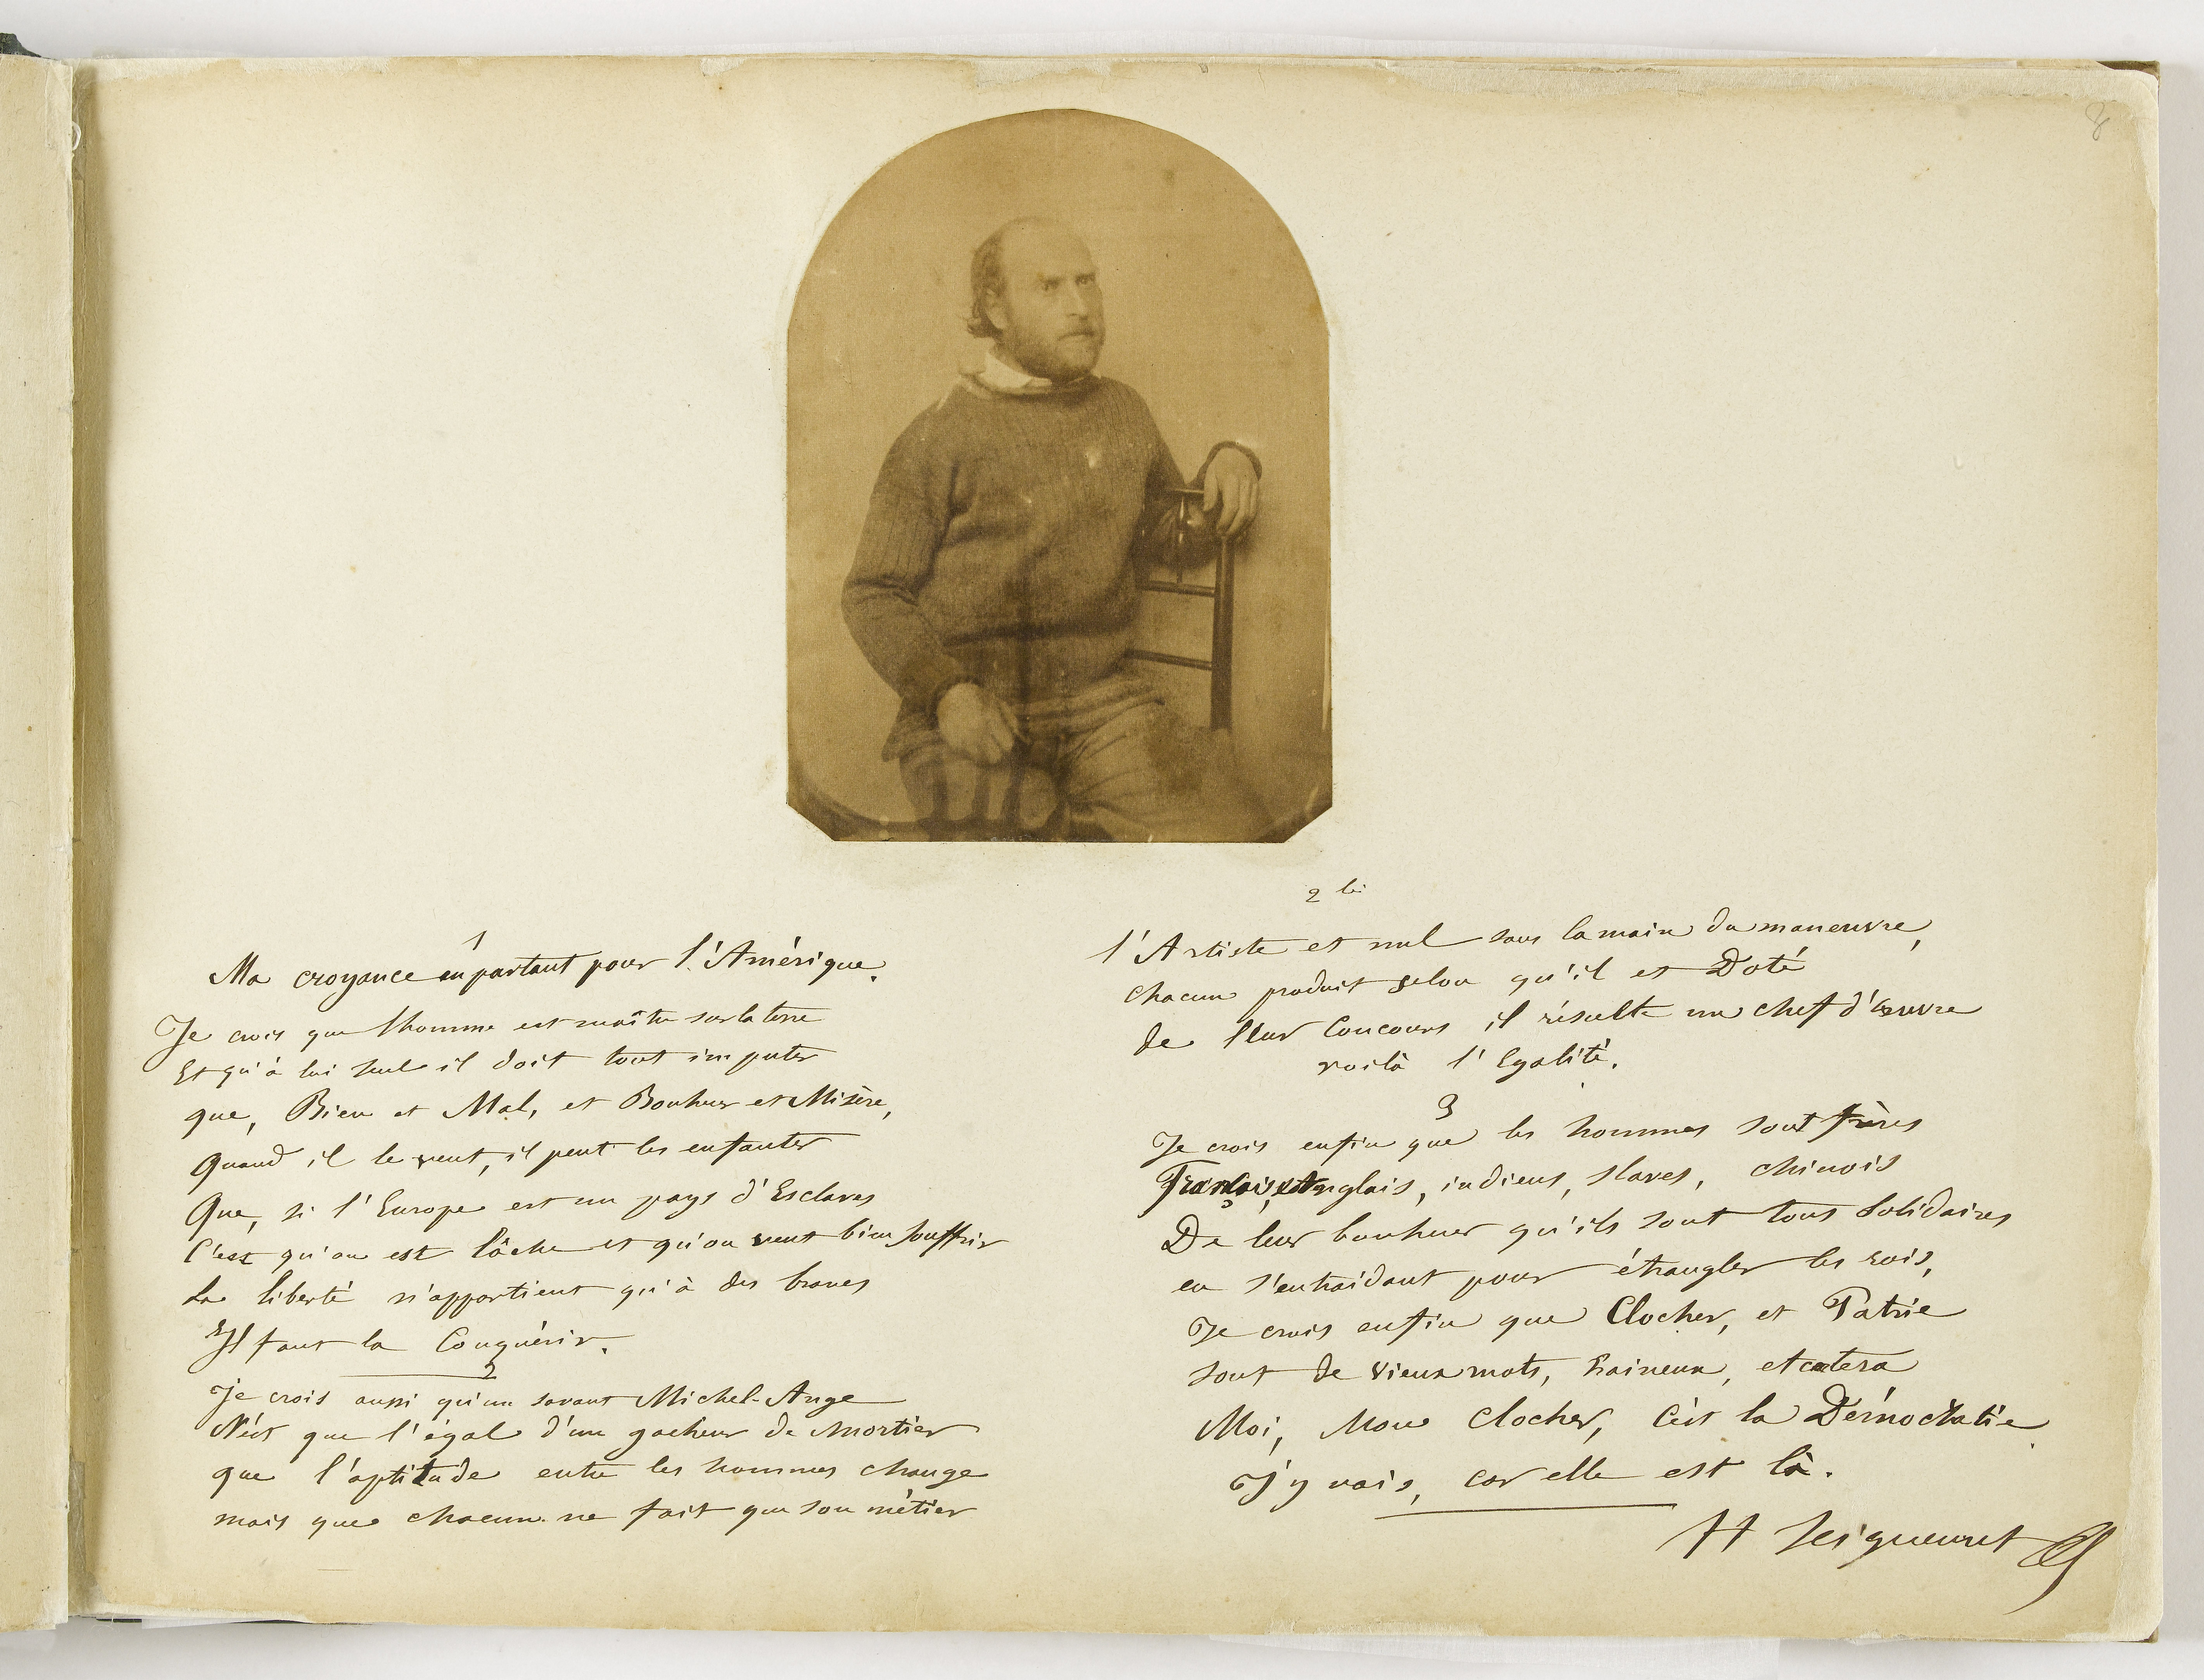 8
1
Ma croyance en partant pour l'Amérique.
Je crois que l'homme est maître sur la terre
Et qu'à lui seul il doit tout imputer
que, Bien et Mal, et Bonheur et Misère,
Quand il le veut, il peut les enfanter
Que, si l'Europe est un pays d'Esclaves
C'est qu'on est lâche et qu'on veut bien souffrir
La liberté n'appartient qu'à des braves
Il faut la Conquérir.
2
Je crois aussi qu'un savant Michel-Ange
N'est que l'égal d'un gacheur de mortier
que l'aptitude entre les hommes change
mais que chacun ne fait que son métier
2
l'Artiste et nul sans la main du maneuvre,
Chacun produit selon qu'il et Doté
de lleur Concours il résulte un chef d'œuvre
voilà l'Egalité.
3
Je crois enfin que les hommes sont frères
Français, Anglais, indiens, slaves, chinois
De leur bonheur qu'ils sont tous Solidaires
en s'entraidant pour étrangler les rois,
Je crois enfin que Clocher, et Patrie
sont de vieux mots, haineux, et cætera
Moi, Mon Clocher, C'est la Démocratie
J'y vais, car elle est là.
H Seigneuret